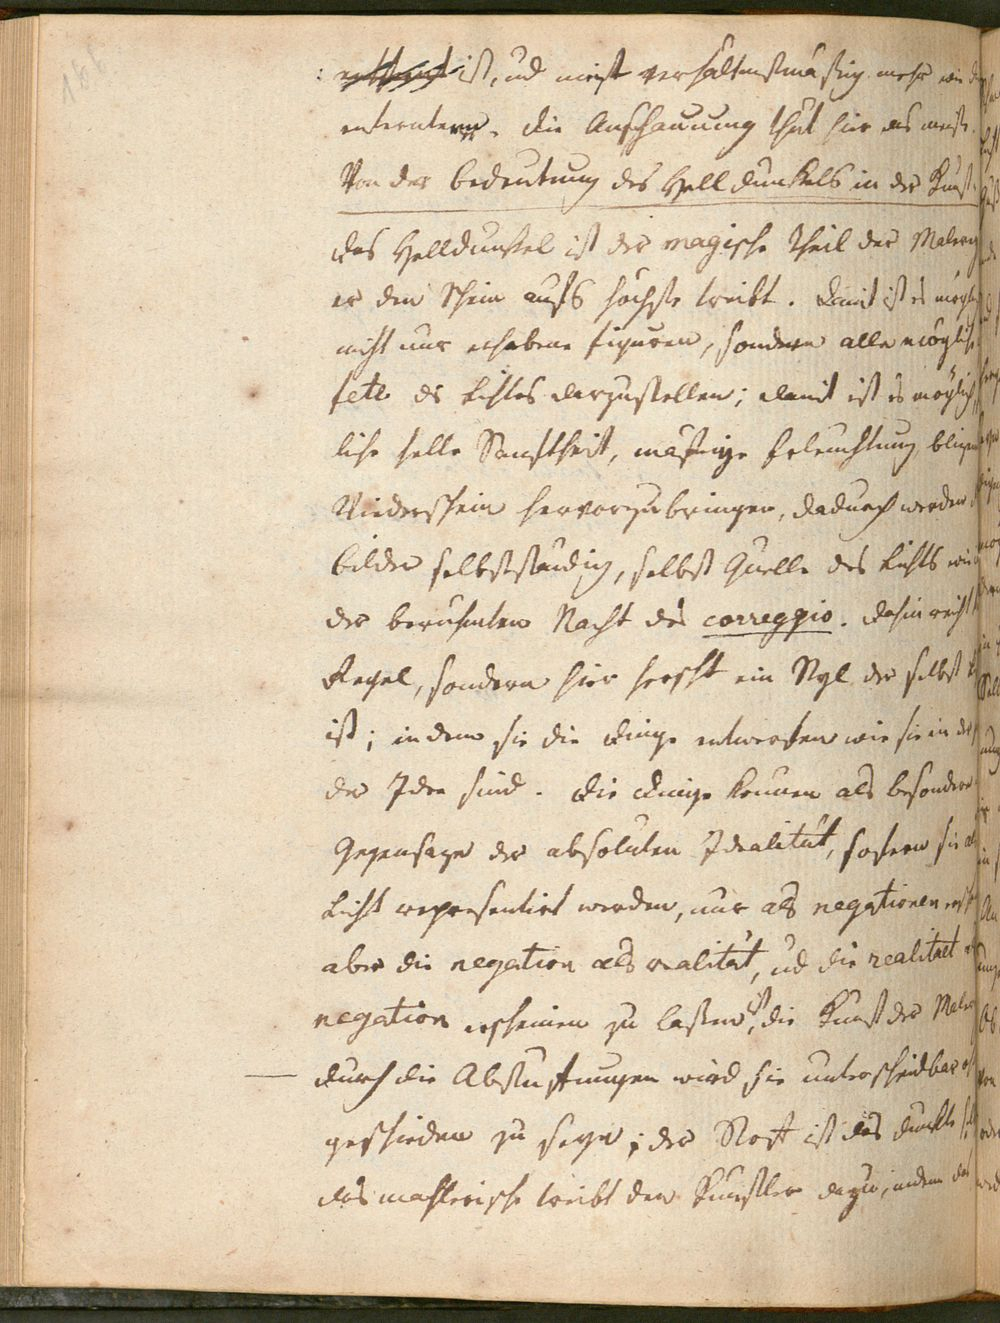 186
: entfernt ist, ud meist verhältnißmäßig mehr wie die
enterntern. die Anschauung thut hier das meiste.
Von der bedeutung des Helldunkels in der Kunst.
das Helldunkel ist der magische Theil der Malerey
er den Schein aufs höchste treibt. damit ist es möglich
nicht nur erhabene figuren, sondern alle mögliche
fete des Lichtes darzustellen; damit ist es möglich
liche helle Sanftheit, mäßige Erleuchtung
Wiederschein hervorzubringen, dadurch werden
bilder selbstständig, selbst Quelle des Lichts wie
der berühmten Nacht des correggio. dahin reicht
Regel, sondern hier herscht ein Styl der selbst
ist; indem sie die dinge entwerfen wie sie in der
der Idee sind. die dinge können als besondere
Gegensaze der absoluten Idealität, sofern sie als
Licht representirt werden, nur als negationen
aber die negation als realität, ud die realitaet
negation erscheinen zu laßen, ist die Kunst der Maler
durch die Abstuffungen wird sie unterscheidbar
geschieden zu seyn; der Stoff ist das dunkle
das mahlerische treibt den Künstler dazu, indem das